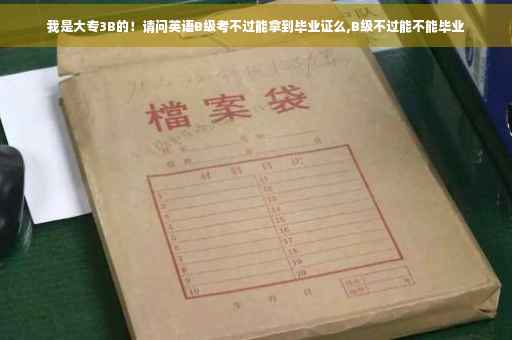 我是大专3B的！请问英语B级考不过能拿到毕业证么,B级不过能不能毕业
檔案袋
材料目次
1 11
2 12
3 13
4 14
5 15
6 16
7 17
8 18
9 19
10 20
年 月 日